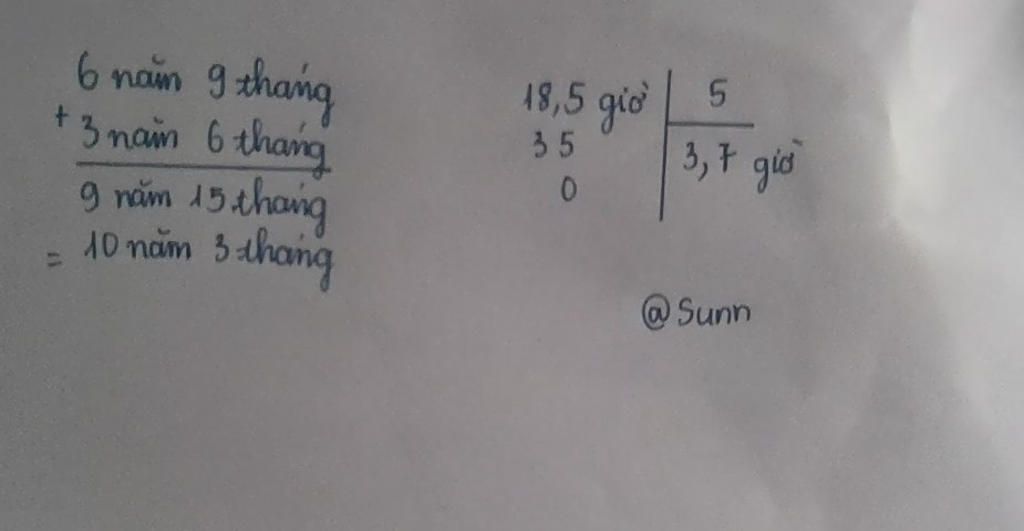 6 năm 9 tháng
+ 3 năm 6 tháng
9 năm 15 tháng
= 10 năm 3 tháng
18,5 giờ 5
3 5 3,7 giờ
0
@Sunn